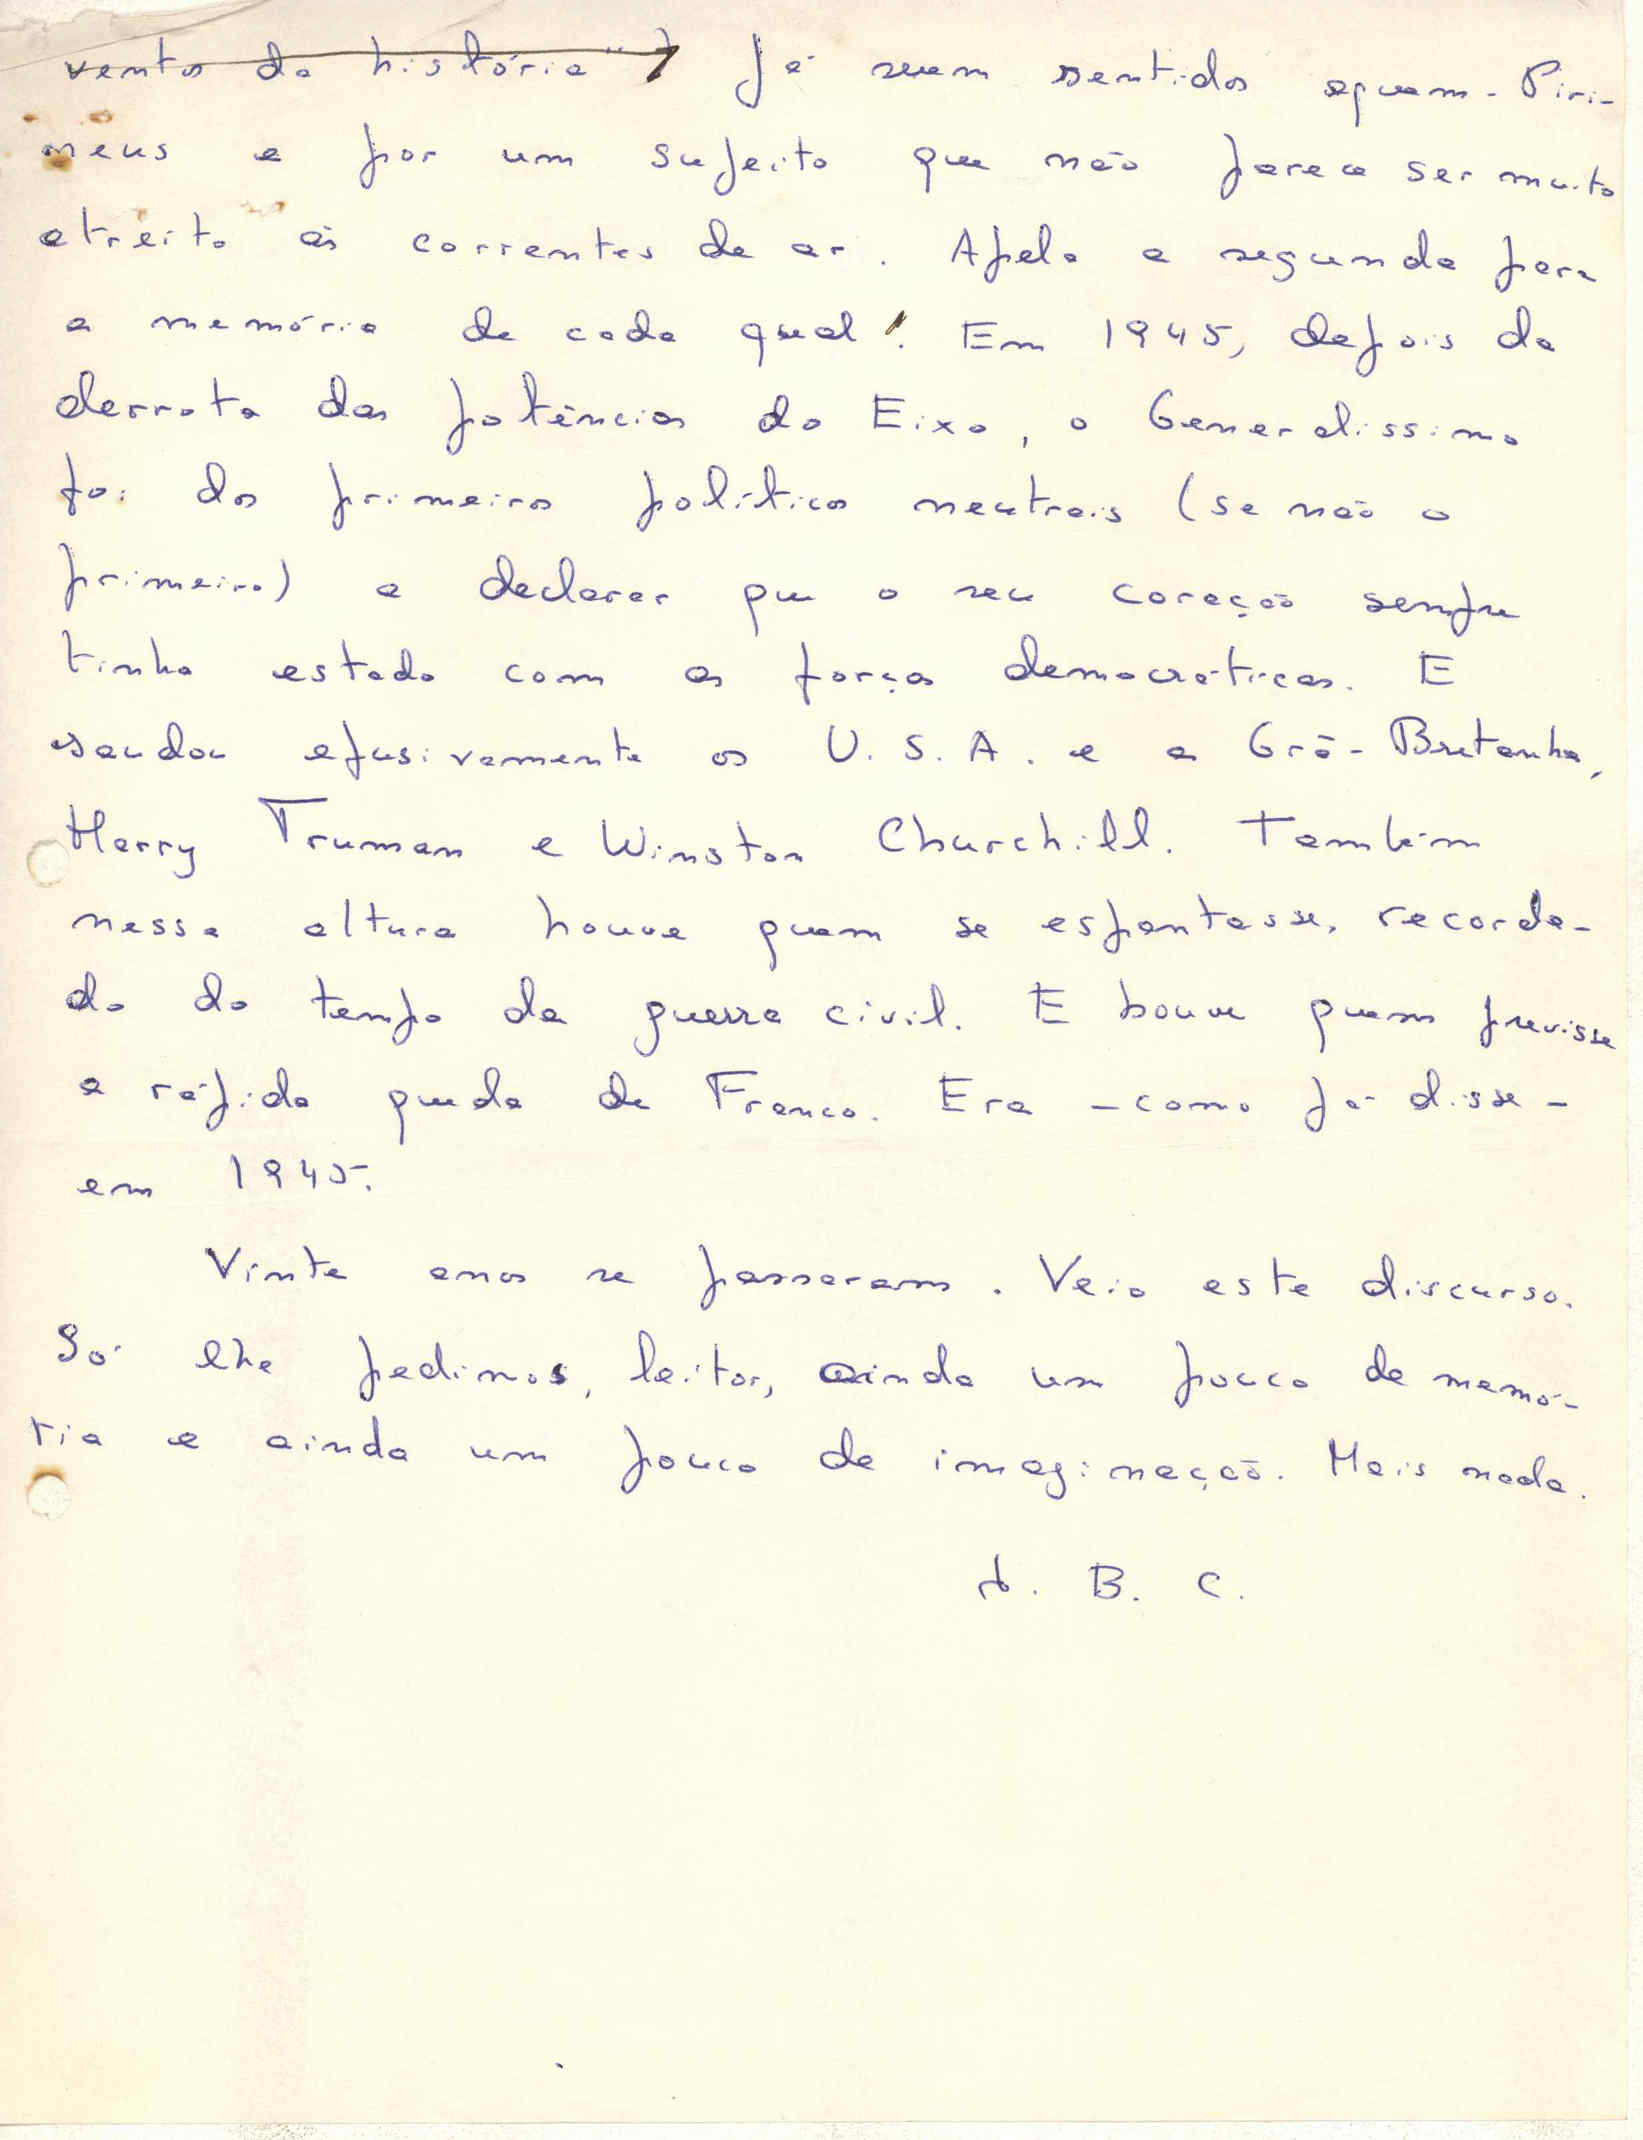 ventos da história") Já serem sentidos aquem-Piri-
neus e por um sujeito que não parece ser muito
atreito às correntes de ar. Apela a segunda para
a memória de cada qual! Em 1945, depois da
derrota das potências do Eixo, o Generalíssimo
foi dos primeiros políticos neutrais (se não o
primeiro) a declarar que o seu coração sempre
tinha estado com as forças democráticas. E
saudou efusivamente os U.S.A. e a Grã-Bretanha,
Harry Truman e Winston Churchill. Também
nessa altura houve quem se espantasse, recorda-
do do tempo da guerra civil. E houve quem previsse
a rápida queda de Franco. Era - como já disse -
em 1945.
Vinte anos se passaram. Veio este discurso.
Só lhe pedimos, leitor, ainda um pouco de memó-
ria e ainda um pouco de imaginação. Mais nada.
A. B. C.